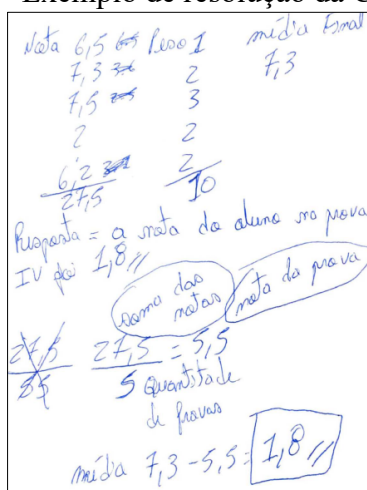 Exemplo de resolução da
Nota 6,5 Peso 1 média Final
7,3 2 7,3
7,5 3
2 2
6,2 2
27,5 10
Resposta = a nota do aluno na prova
IV foi 1,8 //
soma das notas nota da prova
27,5 27,5 = 5,5
55 5 Quantitade
de provas
média 7,3 - 5,5 = 1,8 //